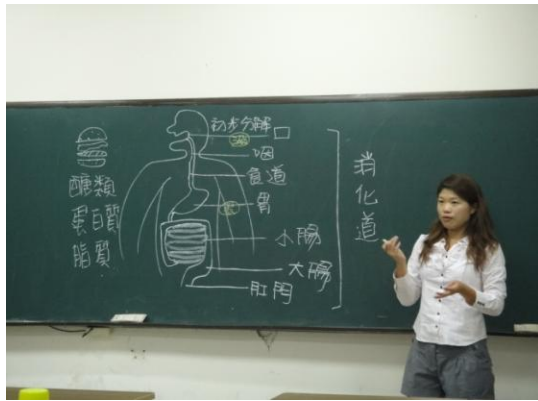 醣類
蛋白質
脂質
初步分解 口
咽
食道
胃
小腸
大腸
肛門
消化道